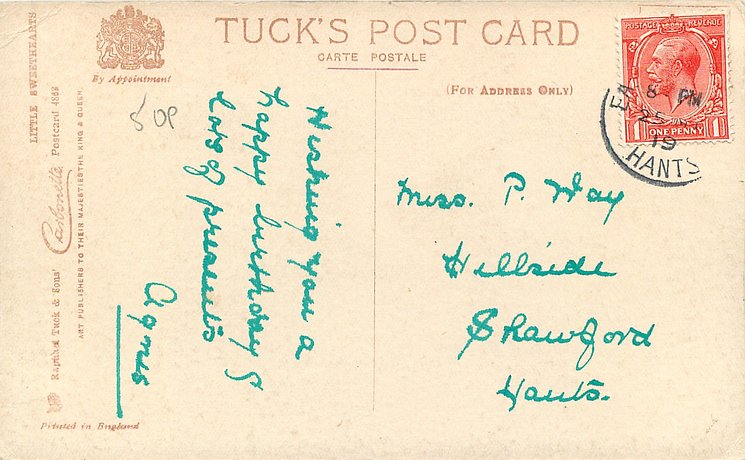 TUCK'S POST CARD
CARTE POSTALE
By Appointment
(FOR ADDRESS ONLY)
POSTAGE REVENUE
ONE PENNY
1 1
8 PM
25
19
HANTS
50p
LITTLE SWEETHEARTS
Carbonette Postcard 4862
Raphael Tuck & Sons'
ART PUBLISHERS TO THEIR MAJESTIES THE KING & QUEEN
Printed in England
Wishing you a
happy birthday &
lots of presents
Agnes
Miss. P. Way
Hillside
Shawford
Hants.